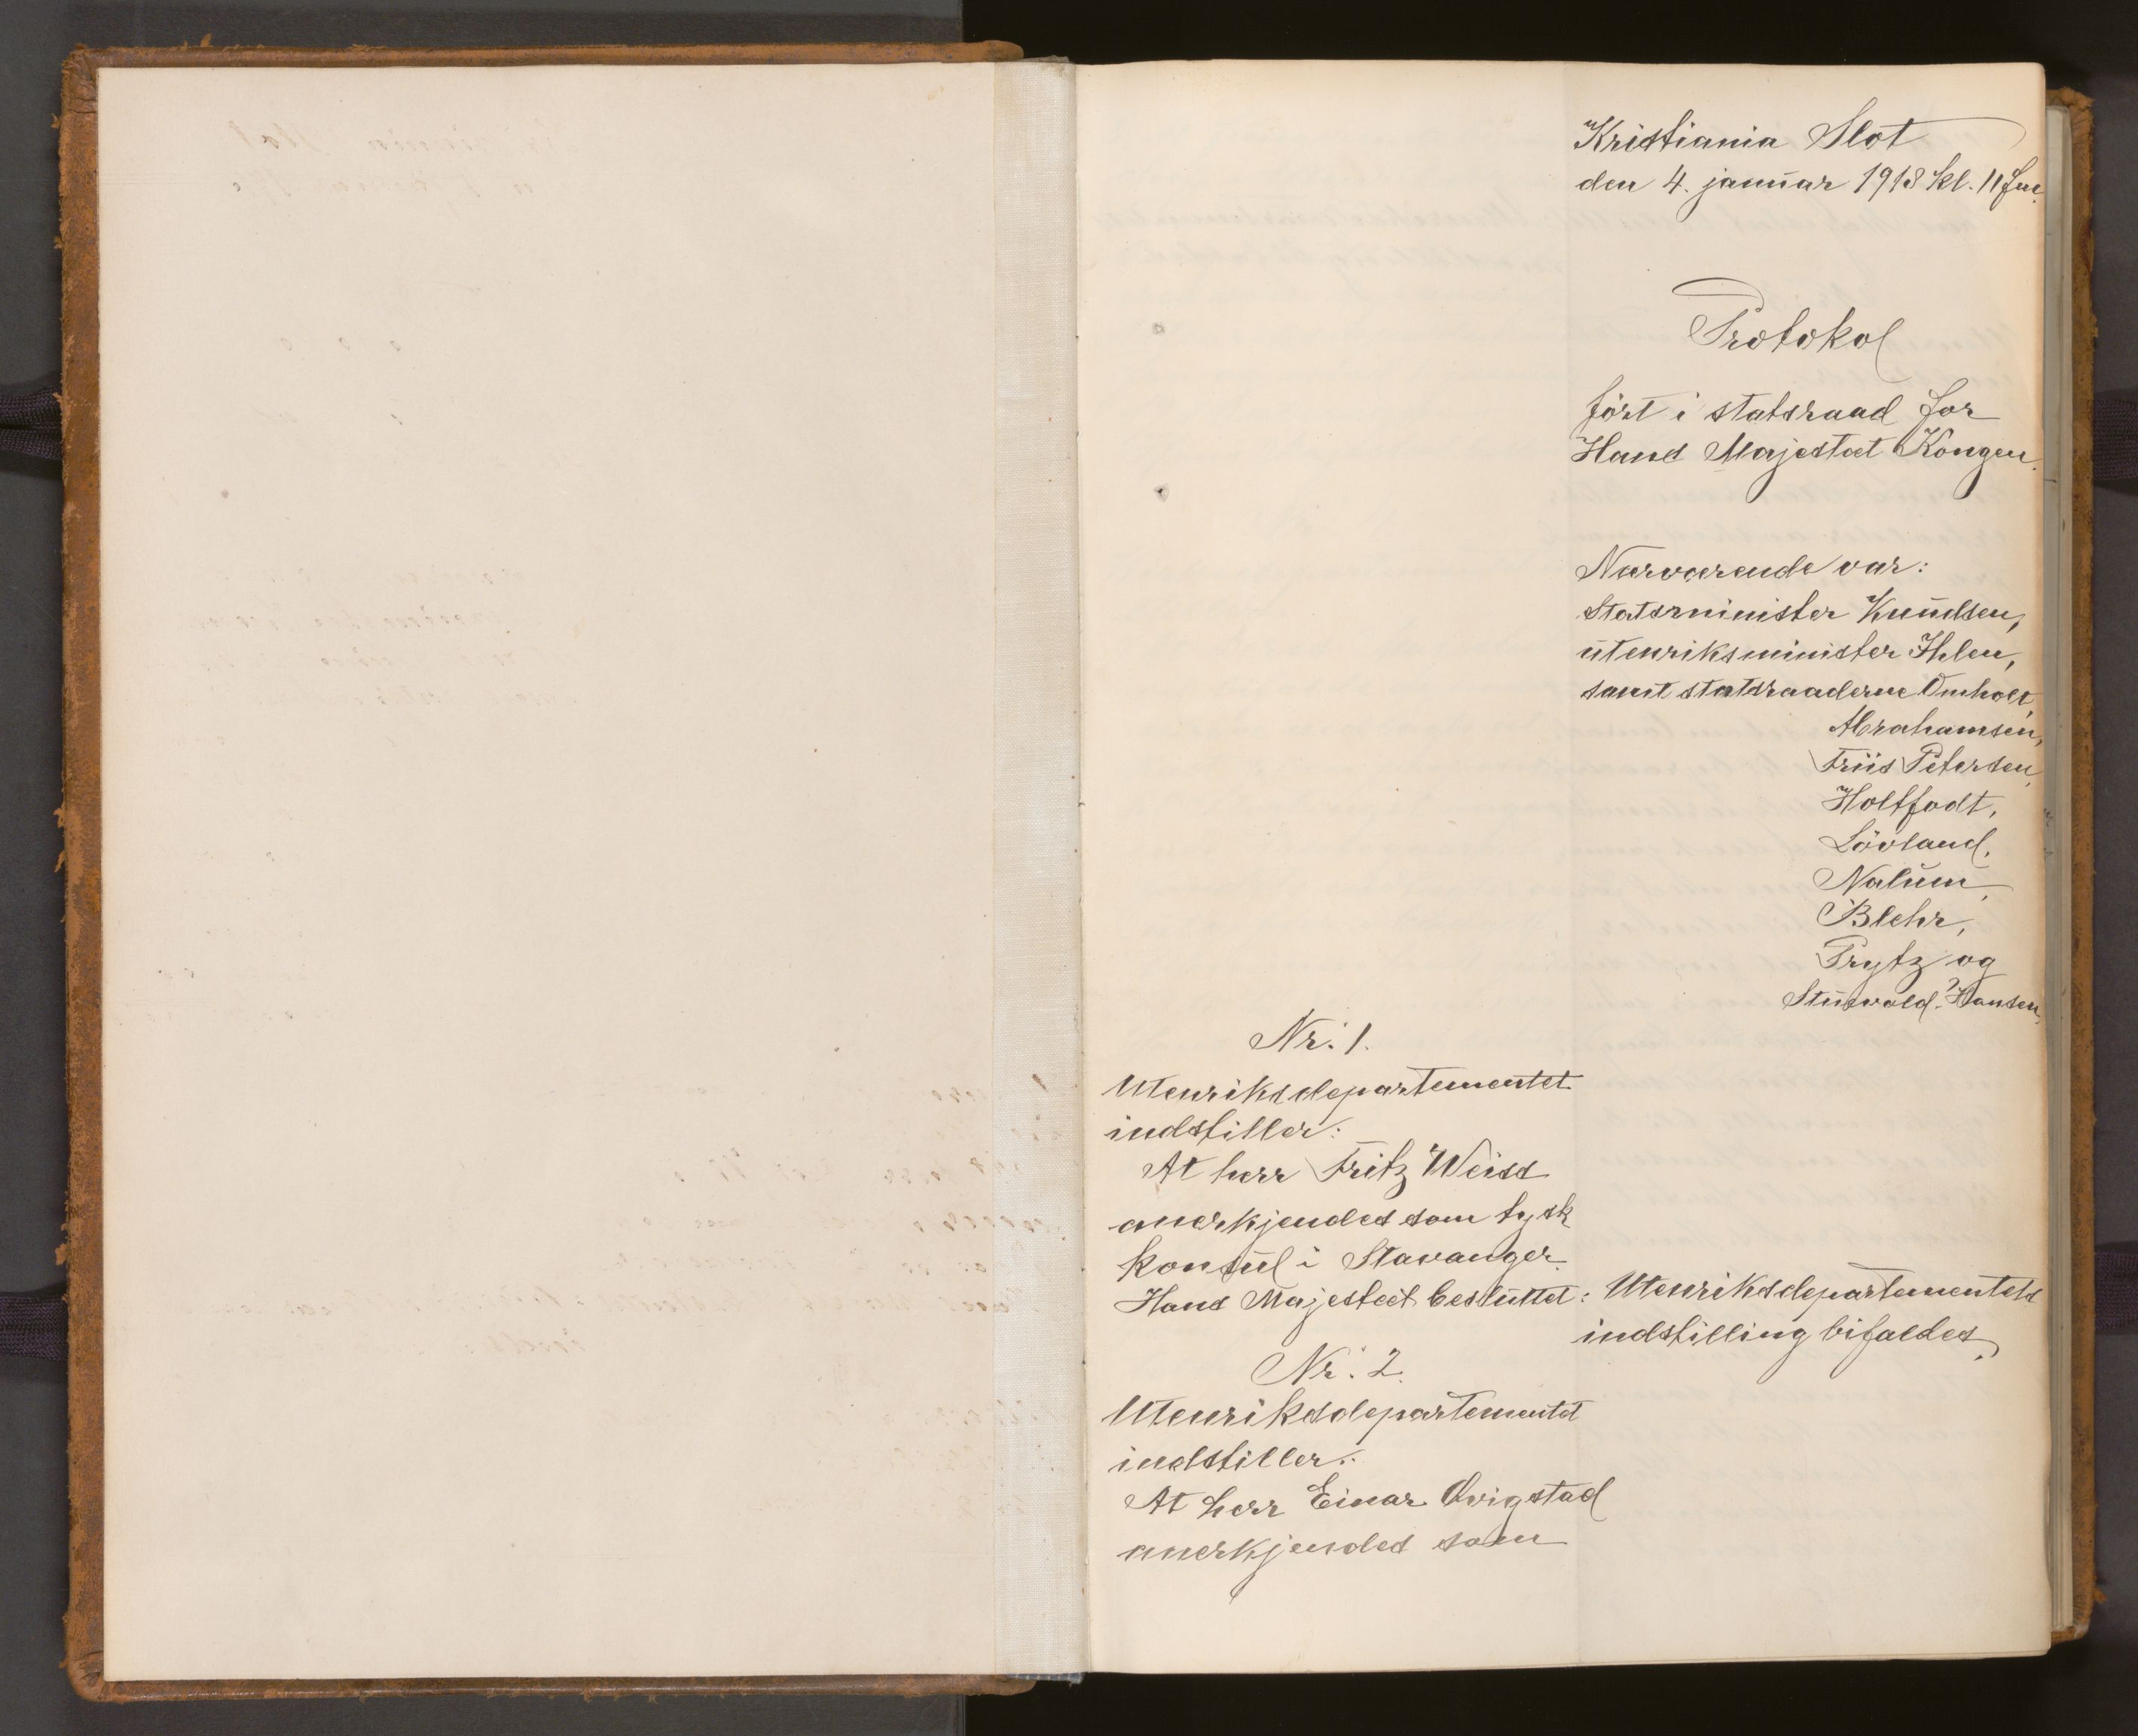 Kristiania Slot
den 4. januar 1918 kl. 11 fm.
Protokol
ført i statsraad for
Hans Majestæt Kongen.
Nærværende var:
Statsminister Knudsen,
utenriksminister Ihlen,
samt statsraaderne Omholt,
Abrahamsen,
Friis Petersen,
Holtfodt,
Løvland,
Nalum,
Blehr,
Prytz og
Stuevold-Hansen.
Nr. 1.
Utenriksdepartementet
indstiller:
At herr Fritz Weiss
anerkjendes som tysk
konsul i Stavanger.
Hans Majestæt besluttet: Utenriksdepartementets
indstilling bifaldes.
Nr. 2.
Utenriksdepartementet
indstiller:
At herr Einar Qvigstad
anerkjendes som